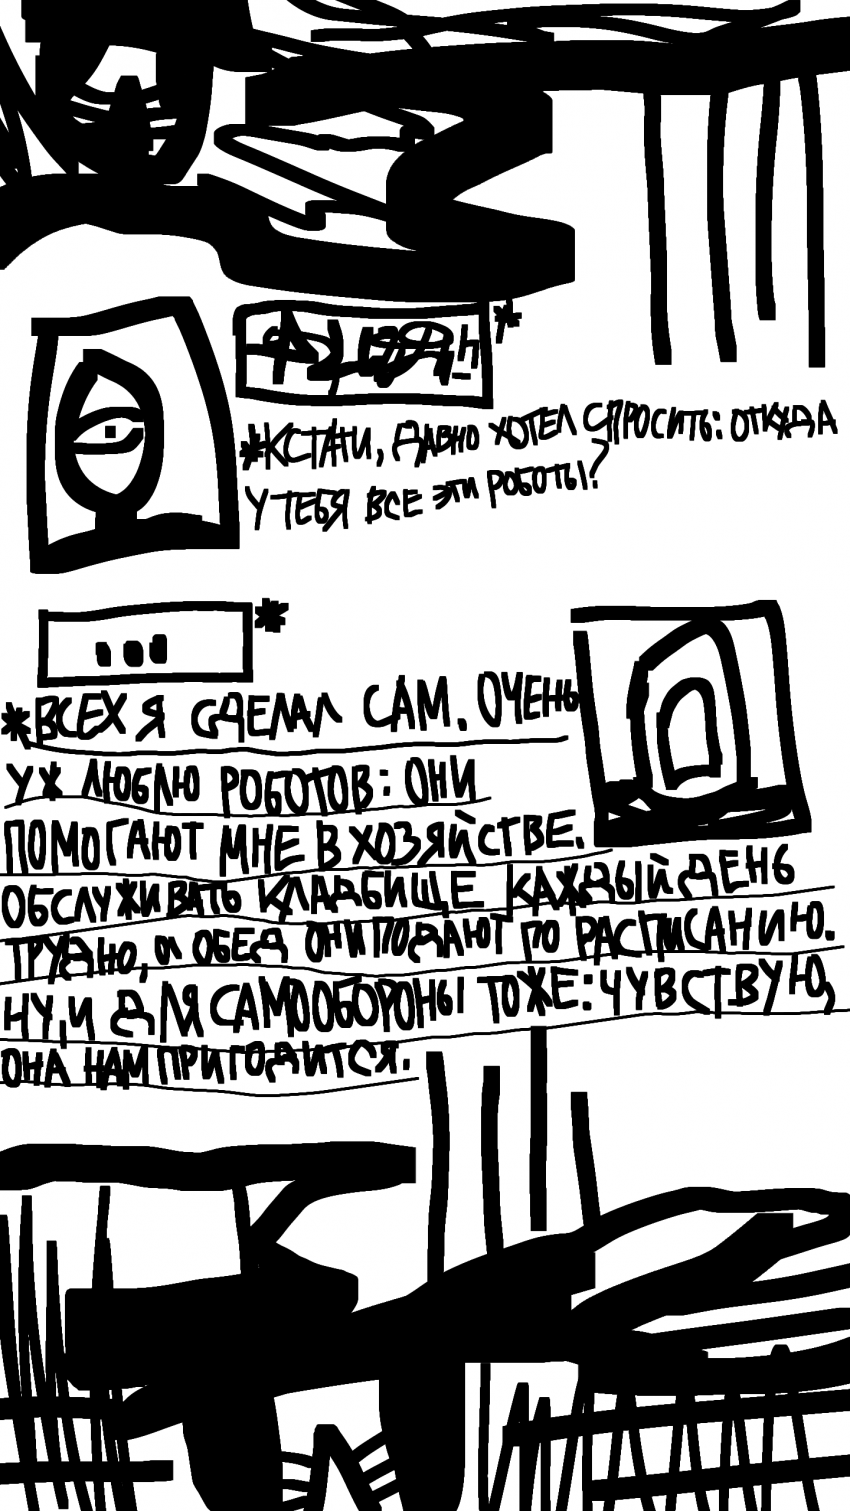 *
*КСТАТИ, ДАВНО ХОТЕЛ СПРОСИТЬ: ОТКУДА
У ТЕБЯ ВСЕ ЭТИ РОБОТЫ?
...*
*ВСЕХ Я СДЕЛАЛ САМ. ОЧЕНЬ
УЖ ЛЮБЛЮ РОБОТОВ: ОНИ
ПОМОГАЮТ МНЕ В ХОЗЯЙСТВЕ.
ОБСЛУЖИВАТЬ КЛАДБИЩЕ КАЖДЫЙ ДЕНЬ
ТРУДНО, А ОБЕД ОНИ ПОДАЮТ ПО РАСПИСАНИЮ.
НУ, И ДЛЯ САМООБОРОНЫ ТОЖЕ: ЧУВСТВУЮ,
ОНА НАМ ПРИГОДИТСЯ.